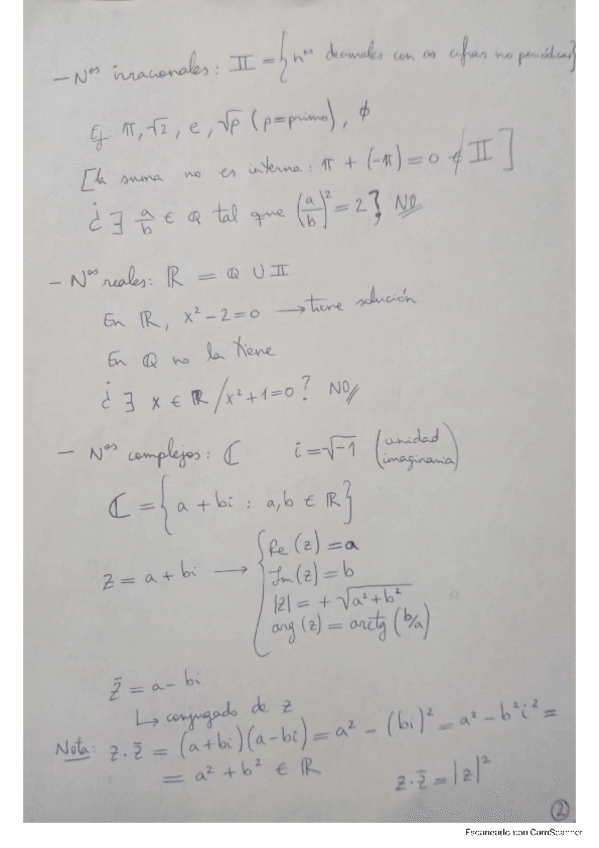 - Nos irracionales: II = { nos decimales con ∞ cifras no periódicas}
Ej. π, √2, e, √p (p=primo), ϕ
[la suma no es interna: π + (-π) = 0 ∉ II]
¿ ∃ a/b ∈ Q tal que (a/b)² = 2? NO
- Nos reales: ℝ = Q ∪ II
En ℝ, x² - 2 = 0 → tiene solución
En Q no la tiene
¿ ∃ x ∈ ℝ / x² + 1 = 0? NO
- Nos complejos: ℂ i = √-1 (unidad imaginaria)
ℂ = { a + bi : a, b ∈ ℝ }
z = a + bi → { Re (z) = a
Im (z) = b
|z| = + √a² + b²
arg (z) = arctg (b/a)
z̄ = a - bi
↳ conjugado de z
Nota: z · z̄ = (a+bi)(a-bi) = a² - (bi)² = a² - b²i² =
= a² + b² ∈ ℝ z · z̄ = |z|²
2
Escaneado con CamScanner